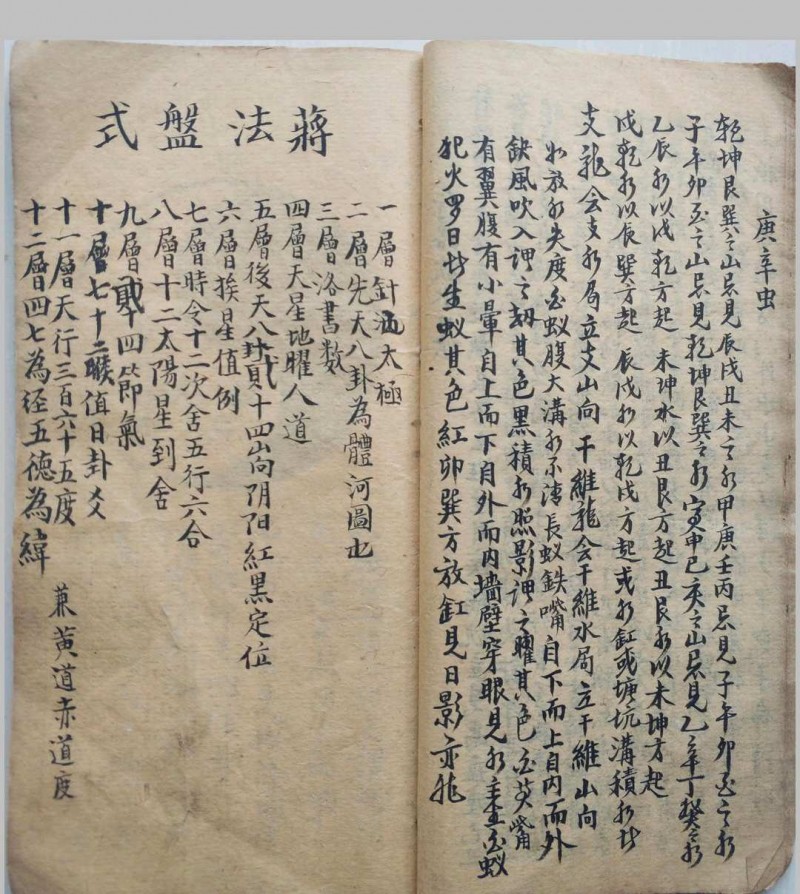 庚辛虫
乾坤艮巽之山忌見辰戌丑未之水甲庚壬丙忌見子午卯酉之水
子午卯酉之山忌見乾坤艮巽之水寅申巳亥之山忌見乙辛丁癸之水
乙辰水以戌乾方起 未坤水以丑艮方起丑艮水以未坤方起
戌乾水以辰巽方起 辰戌水以乾戌方起或水缸或塘坑溝積水
支龍会支水局立支山向 干維龍会干維水局立干維山向
水失度白蚁腹大溝水不清長蚁鉄嘴自下而上自内而外
缺風吹入謂之刼其色黑積水照影謂之曜其色白黄嘴
有翼腹有小暈自上而下自外而内墙壁穿眼見水主生白蚁
犯火罗日生蚁其色紅卯巽方放缸見日影亦
蔣法盤式
一層針池太極
二層先天八卦為體河圖也
三層洛書数
四層天星地曜人道
五層後天八卦貳十四山向阴阳紅黑定位
六層挨星值例
七層時令十二次舍五行六合
八層十二太陽星到舍
九層貳十四節氣
十層七十二候值日卦爻
十一層天行三百六十五度
十二層四七為经五德為緯 兼黄道赤道度